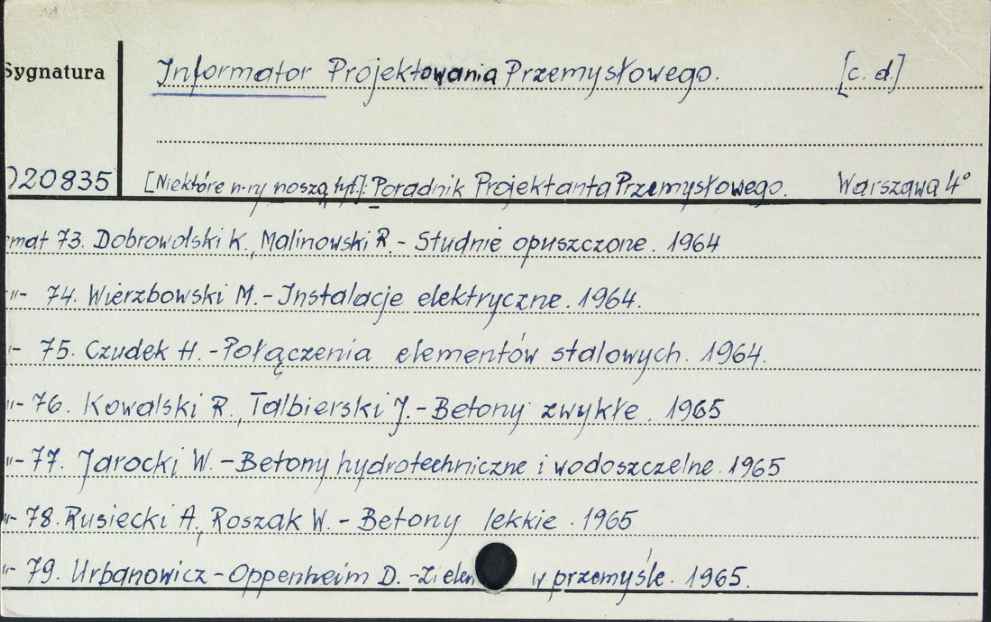 Sygnatura Informator Projektowania Przemysłowego. [c. d.]
020835 [Niektóre n-ry noszą tyt.]: Poradnik Projektanta Przemysłowego. Warszawa 4°
mat 73. Dobrowolski K., Malinowski R. - Studnie opuszczone. 1964
-"- 74. Wierzbowski M. - Instalacje elektryczne. 1964.
-"- 75. Czudek H. - Połączenia elementów stalowych. 1964.
-"- 76. Kowalski R., Talbierski J. - Betony zwykłe. 1965
-"- 77. Jarocki W. - Betony hydrotechniczne i wodoszczelne. 1965
-"- 78. Rusiecki A., Roszak W. - Betony lekkie. 1965
-"- 79. Urbanowicz - Oppenheim D. - Zieleń w przemyśle. 1965.